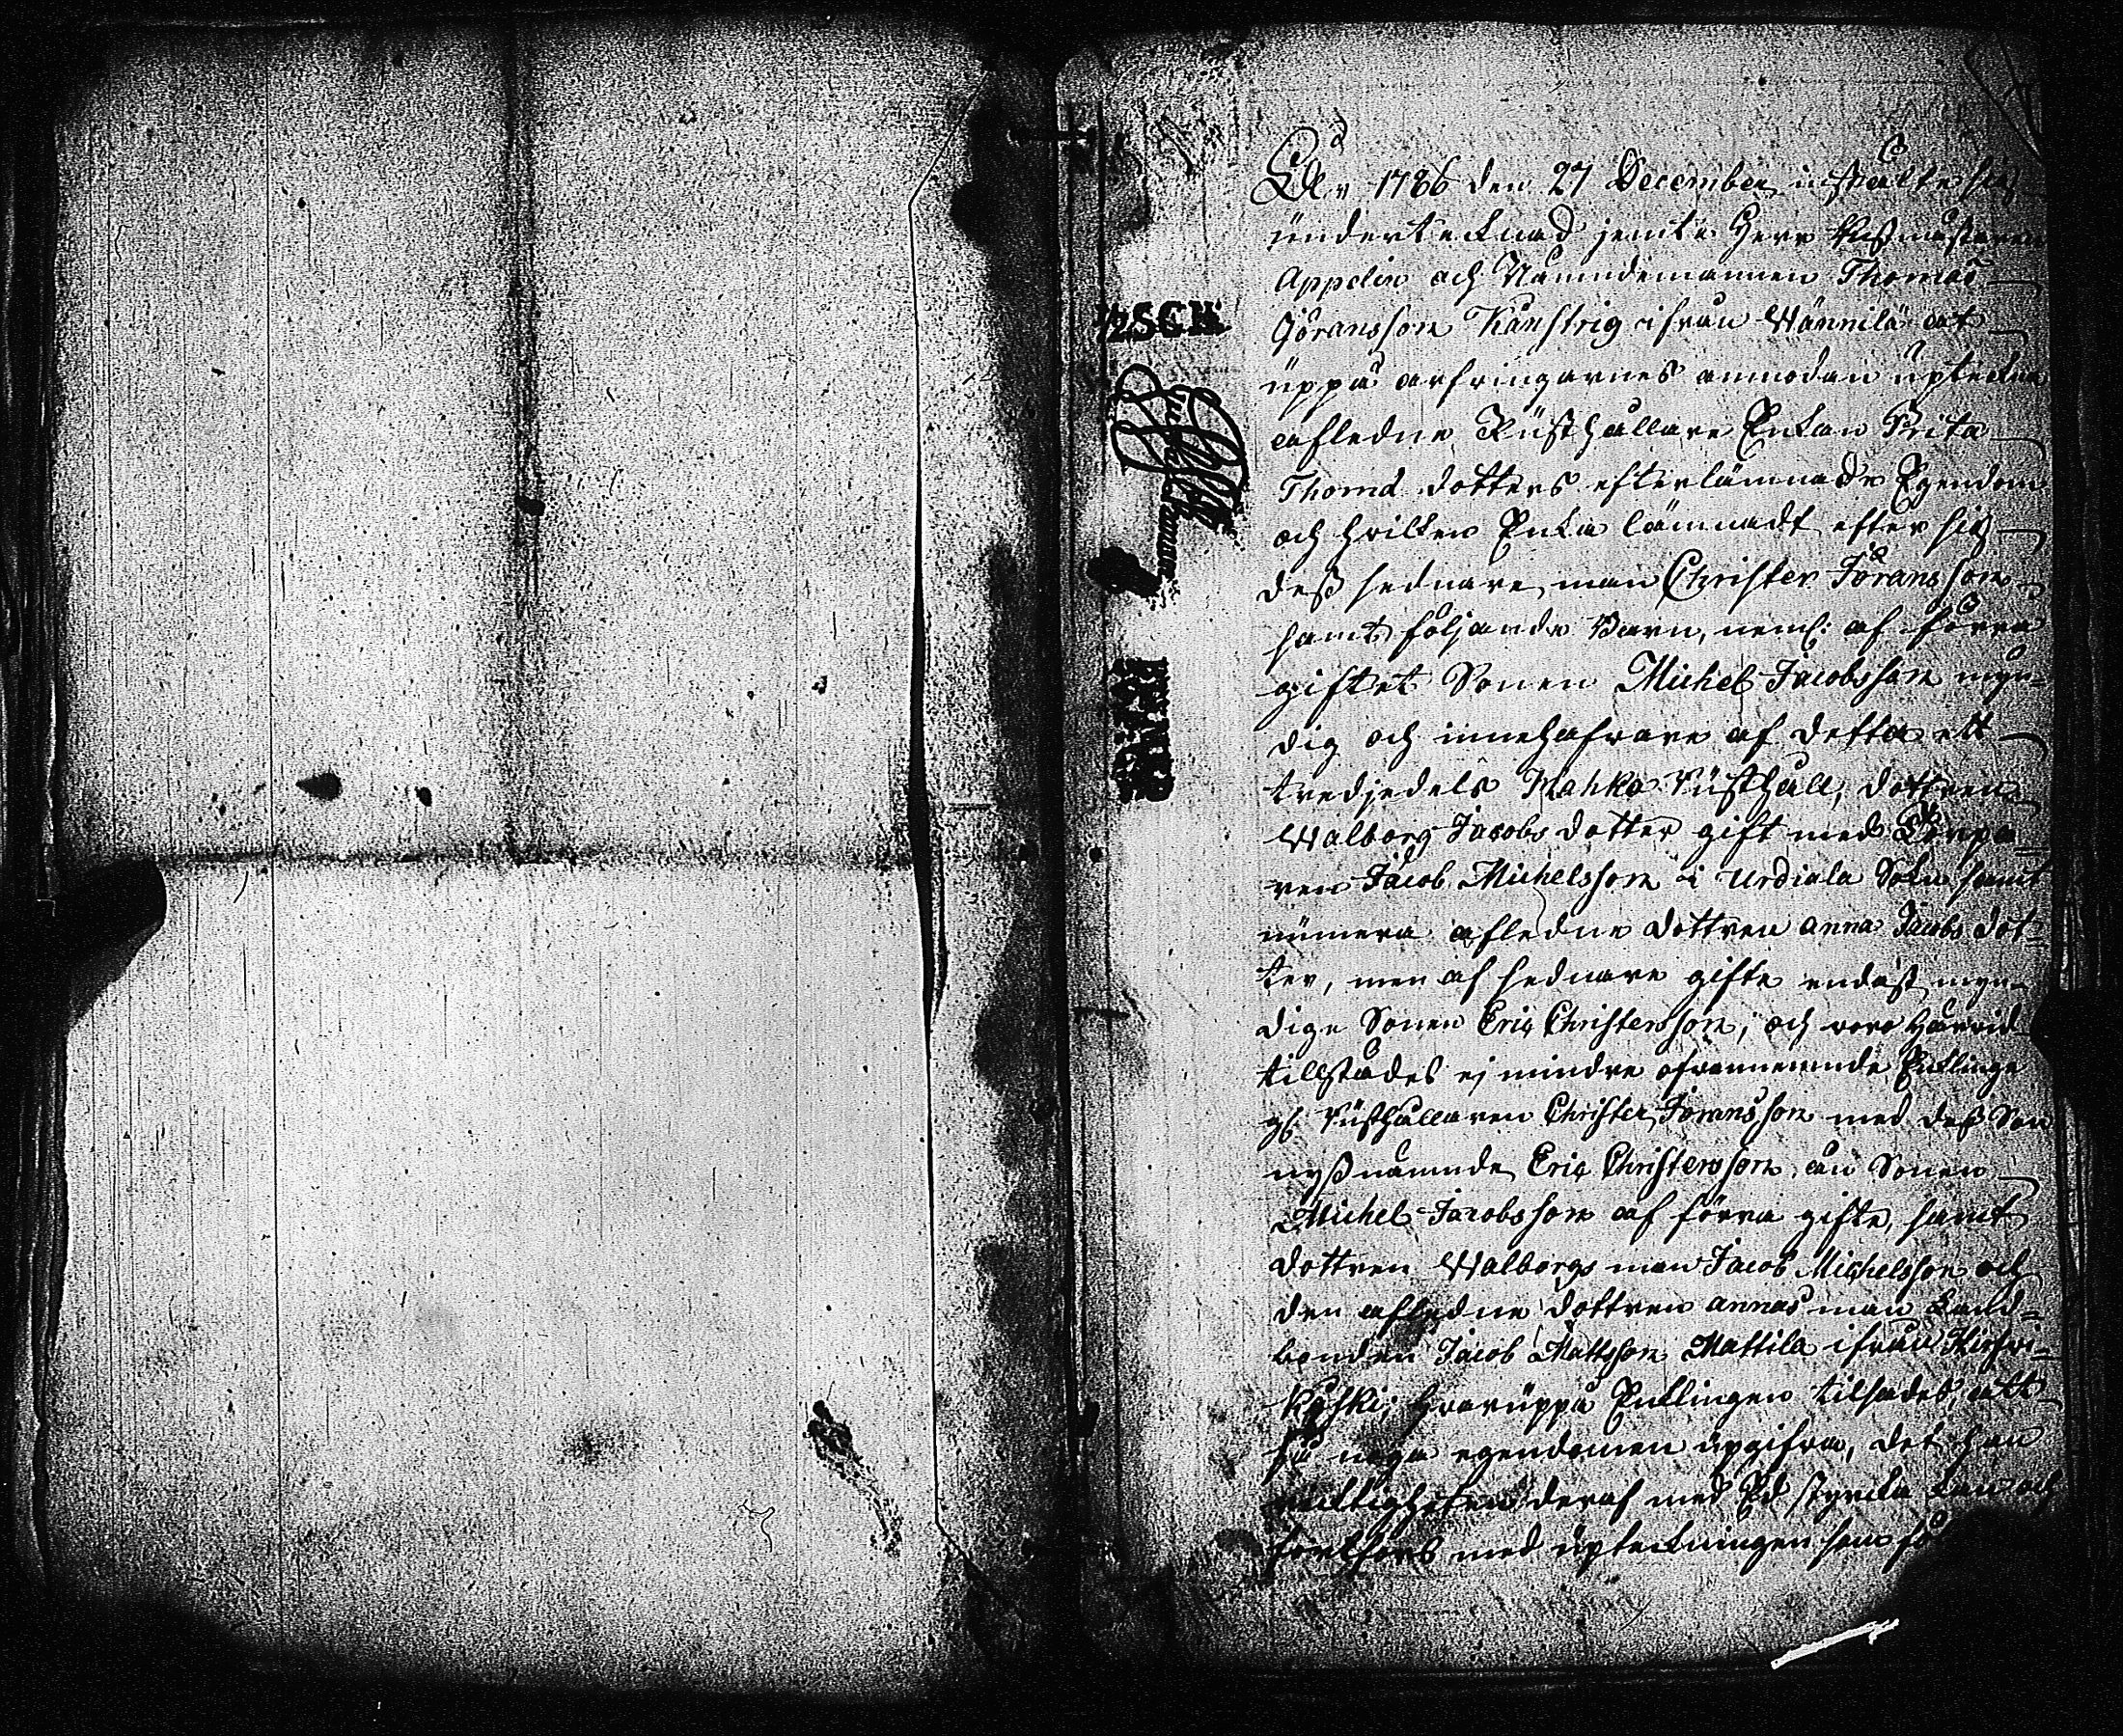 1786 den 27 December instälte sig
undertecknad jemte Herr
Appelin och Nämndemannen Thomas
Göransson Kanstrig ifrån Wännilä at
uppå arfvingarnes anmodan upteckna
afledne Rusthållare Enkan Brita
Thomæ dotters efterlämnade Egendom
och hvilken Enka lämnadt efter sig
dess sednare man Christer Jöransson
samt följande Barn, neml: af förra
giftet Sonen Michel Jacobsson myn-
dig och innehafvare af detta ett
tredjedels Mahka Rusthåll, dottren
Walborg Jacobs dotter gift med
ren Jacob Michelsson i Urdiala Sokn samt
numera afledne dottren Anna Jacobs dot-
ter, men af sednare gifte endast myn-
dige Sonen Eric Christersson, och voro härvid
tillstädes ej mindre ofvannemnde Enkling
Rusthållaren Christer Jöransson med dess Son
nyssnämnde Eric Christersson, än Sonen
Michel Jacobsson af förra gifte, samt
dottren Walborgs man Jacob Michelsson och
den afledne dottren Annas man Land-
bonden Jacob Mattsson Mattila ifrån
koski; hvaruppå Enklingen tilsades, att
så noga egendomen upgifva, det han
riktigheten deraf med Ed styrka kan och
fortfors med uptekningen som
2 SCH.